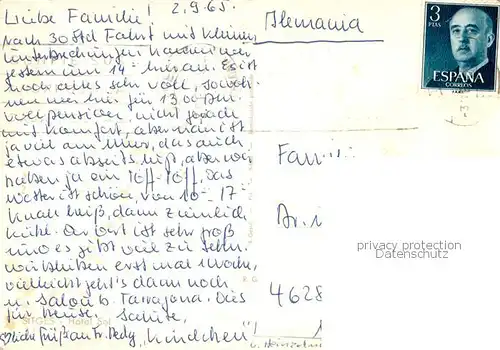 Liebe Familie! 2.9.65.
Alemania
nach 30 Std Fahrt mit kleinen
Unterbrechungen kamen wir
gestern um 14 hier an. Es ist
noch alles sehr voll, so
nen wir hier für 13.00 DM.
Vollpension, nicht gerade
mit Komfort, aber man ist
ja viel am Meer, das auch
etwas abseits liegt, aber wir
haben ja ein Das
Wetter ist schön, von 10 - 17
knall heiß, dann ziemlich
kühl. Der Ort ist sehr groß
und es gibt viel zu sehn.
wir bleiben erst mal 1 Woche,
vielleicht geht's dann noch
n. Salou b. Tarragona. Dies
für heute.
SITGES Hotel Sol
liche Grüße an Fr. Hedy, "Kindchen"!
3
PTAS
ESPAÑA
CORREOS
Fam
4628
privacy protection
Datenschutz